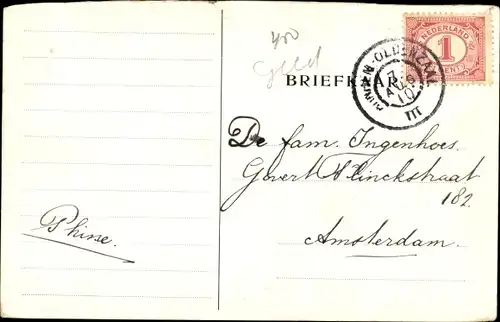 400
Geld
BRIEFKAART
NEDERLAND
1
CENT
OLDENZAAL
7
AUG
10
III
De fam. Ingenhoes.
Govert Flinckstraat
182.
Amsterdam.
Phine.